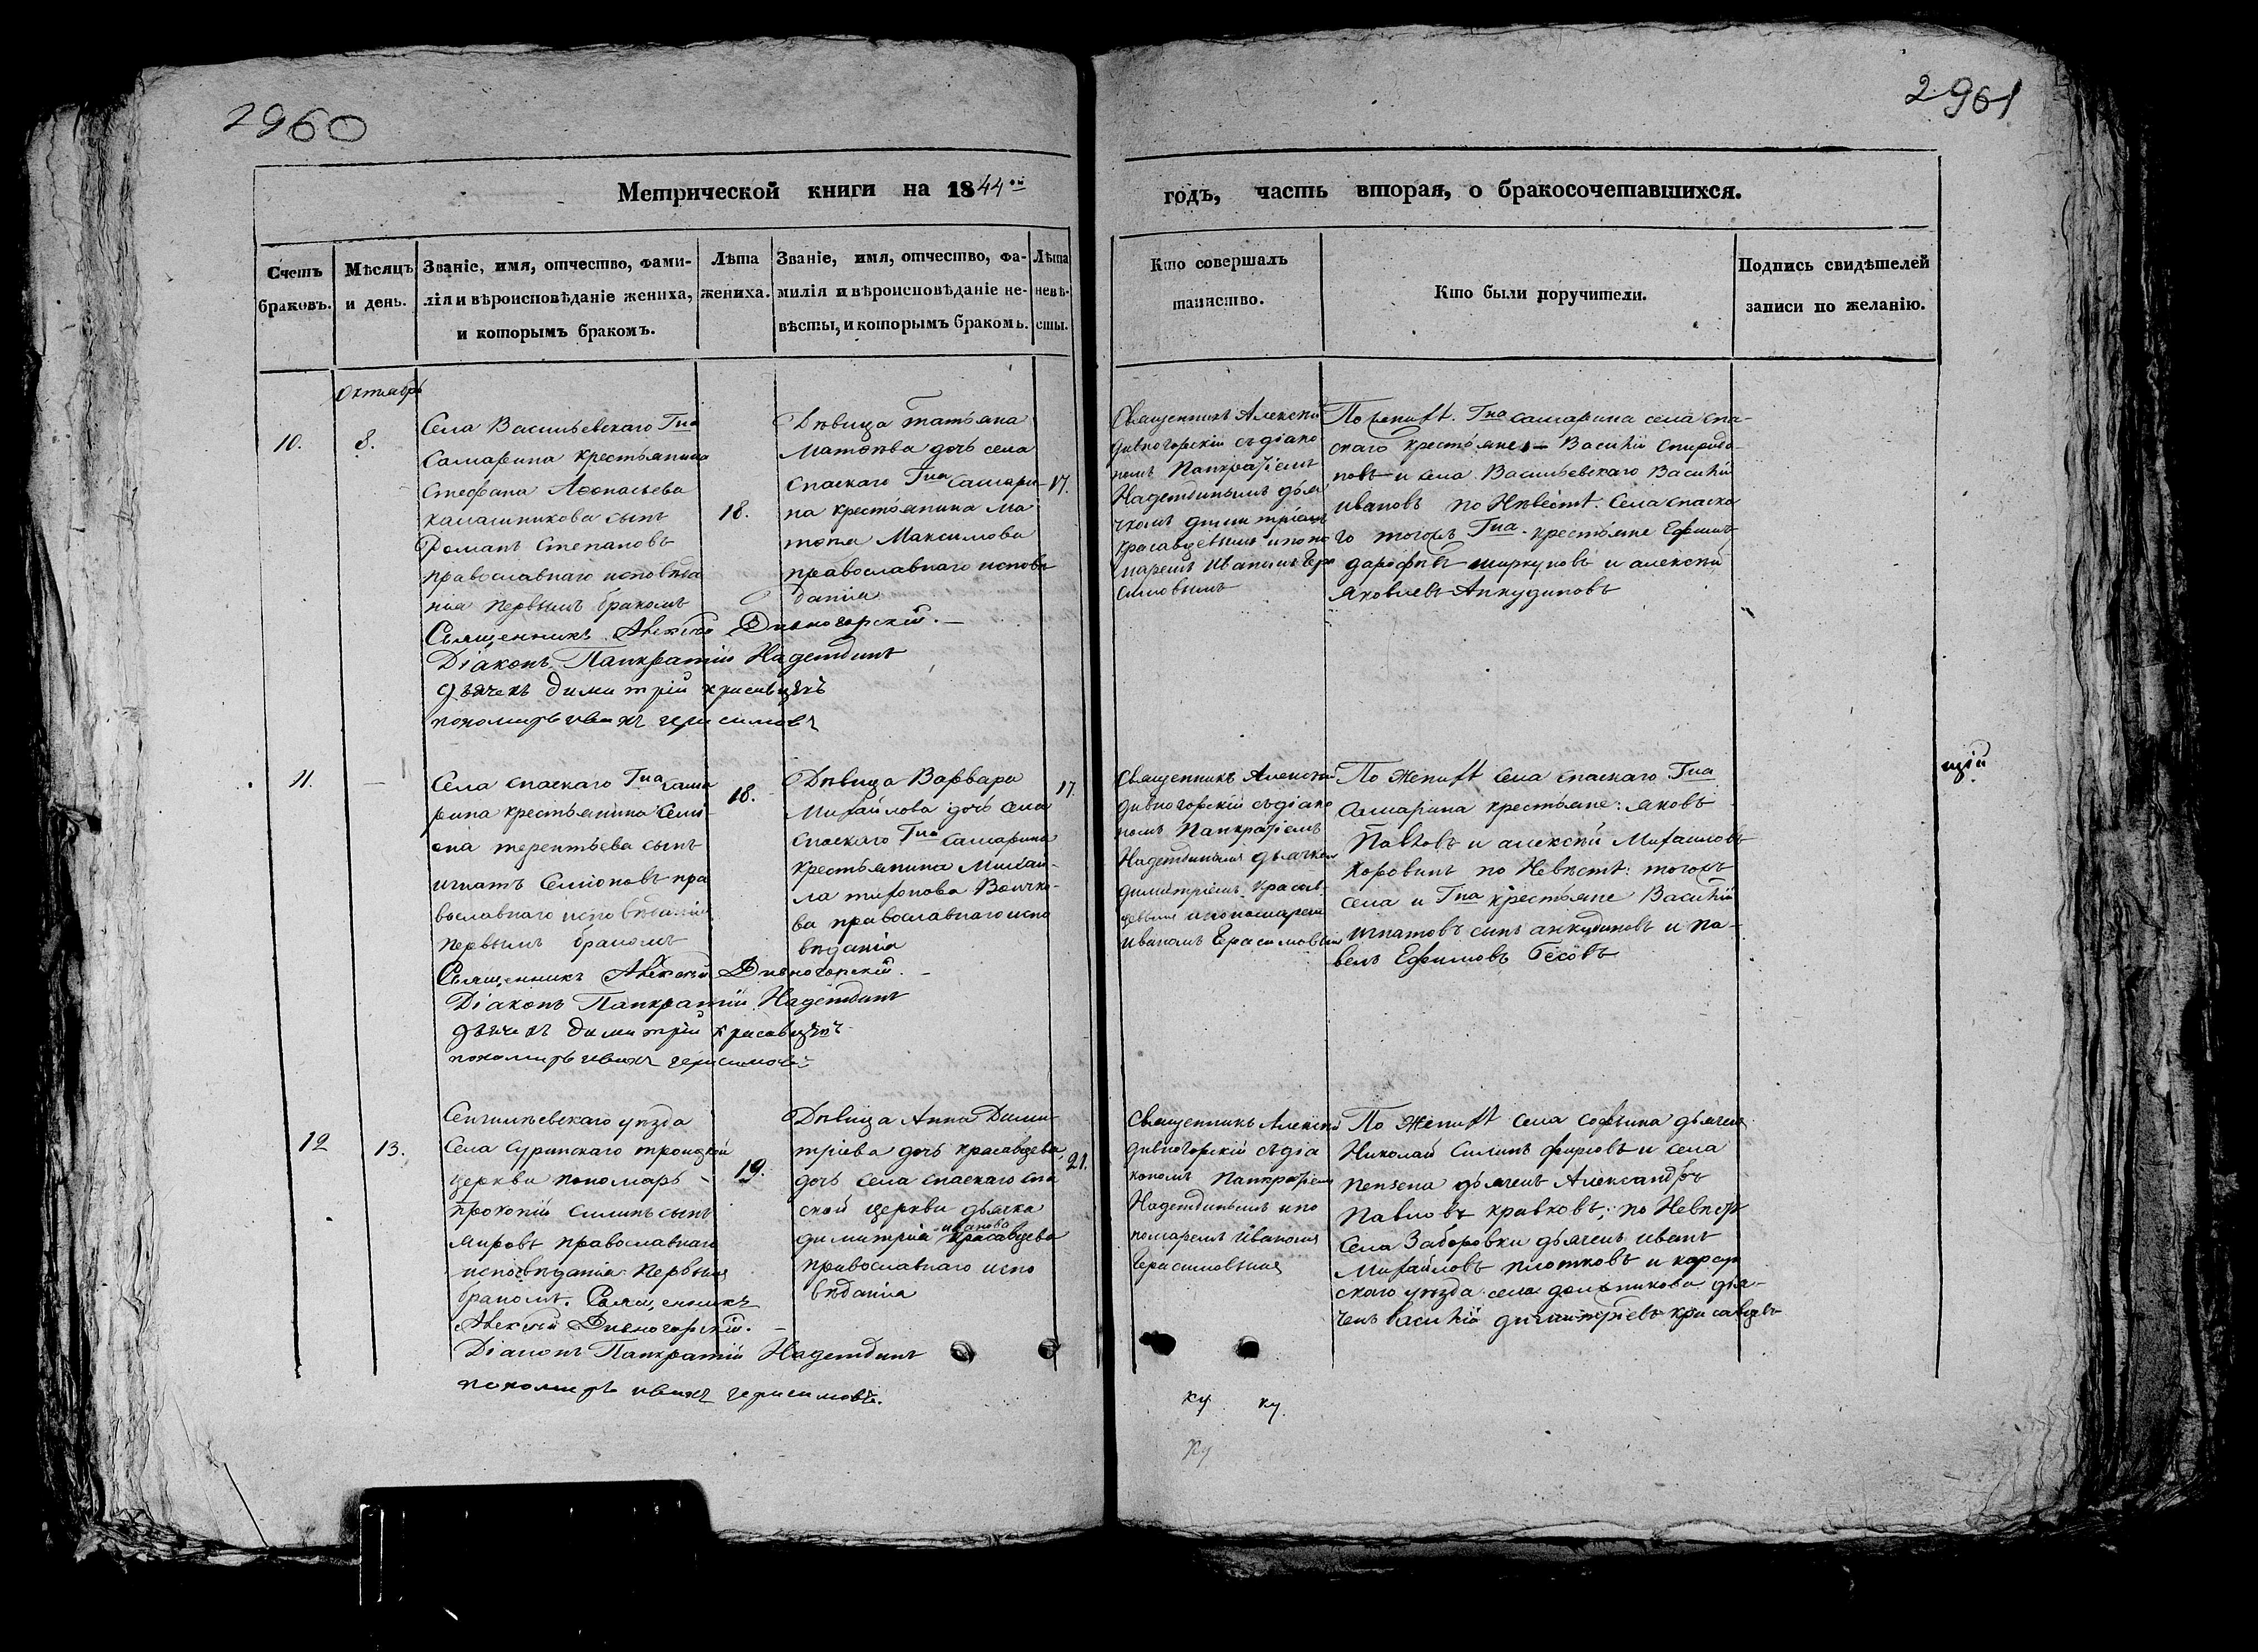 2960
2961
Метрической книги на 1844ой
годъ, часть вторая, о бракосочетавшихся.
Счетъ браковъ.
Мѣсяцъ и день.
Званіе, имя, отчество, фами-
лія и вѣроисповѣданіе жениха,
и которымъ бракомъ.
Лѣта
жениха.
Званіе, имя, отчество, фа-
милія и вѣроисповѣданіе не-
вѣсты, и которымъ бракомъ.
Лѣта
невѣ-
сты.
Кто совершалъ
таинство.
Кто были поручители.
Подпись свидѣтелей
записи по желанію.
Октябрь
10.
8.
Села Васильевскаго Гна
Самарина крестьянина
Стефана Афонасьева
Калашникова сынъ
Романъ Степановъ
православнаго исповѣда
нія первымъ бракомъ
18.
Дѣвица Татьяна
Матѳѣва дочь села
Спаскаго Гна Самари-
на крестьянина Ма
тѳѣя Максимова
православнаго исповѣ
данія
17.
Священникъ Алексѣй Дивногорскій.
Діаконъ Панкратій Надеждинъ
дьячекъ Димитрій Красавцевъ
пономарь Иванъ Герасимовъ
Священникъ Алексѣй
Дивногорскій съ діако
номъ Панкратіемъ
Надеждинымъ дья
чкомъ Димитріемъ
Красавцевымъ и поно
маремъ Иваномъ Гера
симовымъ
По женихѣ. Гна Самарина села Спа-
скаго крестьяне Василій Спиридо-
новъ и села Васильевскаго Василій
Ивановъ по Невѣстѣ. Села Спаска
го тогожъ Гна крестьяне Ефимъ
Дарофѣевъ Ширкуновъ и Алексѣй
Яковлевъ Анкудиновъ
11.
—
Села Спаскаго Гна Сама
рина крестьянина Семі-
она Терентьева сынъ
Игнатъ Семіоновъ пра
вославнаго исповѣданія
первымъ бракомъ
18.
Дѣвица Варвара
Михайлова дочь села
Спаскаго Гна Самарина
крестьянина Михай-
ла
ва православнаго испо
вѣданія
17
Священникъ Алексѣй Дивногорскій.
Діаконъ Панкратій Надеждинъ
дьячекъ Димитрій Красавцевъ
пономарь Иванъ Герасимовъ
Священникъ Алексѣй
Дивногорскій съ діако
номъ Панкратіемъ
Надеждинымъ дьячкомъ
Димитріемъ Красав
цевымъ и пономаремъ
Иваномъ Герасимовымъ
По женихѣ села Спаскаго Гна
Самарина крестьяне: Яковъ
Павловъ и Алексѣй Михайловъ
Коровинъ по Невѣстѣ: тогожъ
села и Гна крестьяне Василій
Игнатовъ сынъ Анкудиновъ и Па-
велъ Ефимовъ
щій
12
13.
Сенгилѣевскаго уѣзда
Села Суринскаго Троицкой
церкви пономарь
Прокопій Силинъ сынъ
Мировъ православнаго
исповѣданія первымъ
бракомъ. Священникъ
Алексѣй Дивногорскій.
Діаконъ Панкратій Надеждинъ
пономарь Иванъ Герасимовъ.
19.
Дѣвица Анна Дими
тріева дочь Красавцева,
дочь села Спаскаго Спа
ской церкви дьячка
Иванова
Димитрія Красавцева
православнаго испо
вѣданія
21.
Священникъ Алексѣй
Дивногорскій съ діа
кономъ Панкратіемъ
Надеждинымъ и по
номаремъ Иваномъ
Герасимовымъ
По женихѣ села Софьина дьячекъ
Николай Силинъ Фирсовъ и села
дьячекъ Александръ
Павловъ Кравковъ; по Невѣстѣ
Села Заборовки дьячекъ Иванъ
Михайловъ Плотковъ и Карсун
скаго уѣзда села дья-
чекъ Василій Димитріевъ Красавцевъ
ку ку.
ку